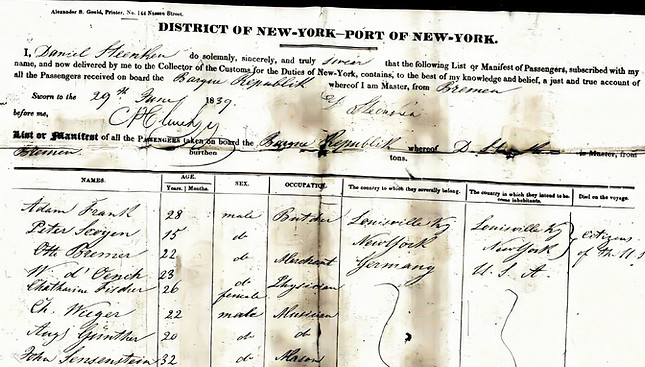 Alexander S. Gould, Printer, No. 144 Nassau Street.
DISTRICT OF NEW-YORK—PORT OF NEW-YORK.
I, Daniel Steenken do solemnly, sincerely, and truly swear that the following List or Manifest of Passengers, subscribed with my
name, and now delivered by me to the Collector of the Customs for the Duties of New-York, contains, to the best of my knowledge and belief, a just and true account of
all the Passengers received on board the Barque Republik whereof I am Master, from Bremen
Sworn to the 29th June 1839.
before me,
List or Manifest of all the PASSENGERS taken on board the Barque Republik whereof is Master, from
Bremen burthen tons.
NAMES. AGE. Years. | Months. SEX. OCCUPATION. The country to which they severally belong. The country in which they intend to become inhabitants. Died on the voyage.
Adam Frank 28 male Butcher Louisville Ky Louisville Ky Citizens
Peter 15 do New York New York of the U.S
Otto Bremer 22 Merchant Germany U.S.A.
W. d'Oench 23 do Physician
Chatharine 26 female
Ch. Wager 22 male Musician
Augt Günther 20 do do
John Sensenstein 32 do Mason